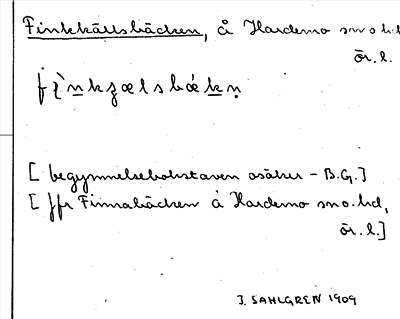 Finkkällsbäcken, å Hardemo sn o. hd
ör. l.
fìnkʒælsbækn̥
[begynnelsebokstaven osäker – B.G.]
[Jfr Finnabäcken å Hardemo sn o. hd,
ör. l.]
J. SAHLGREN 1909